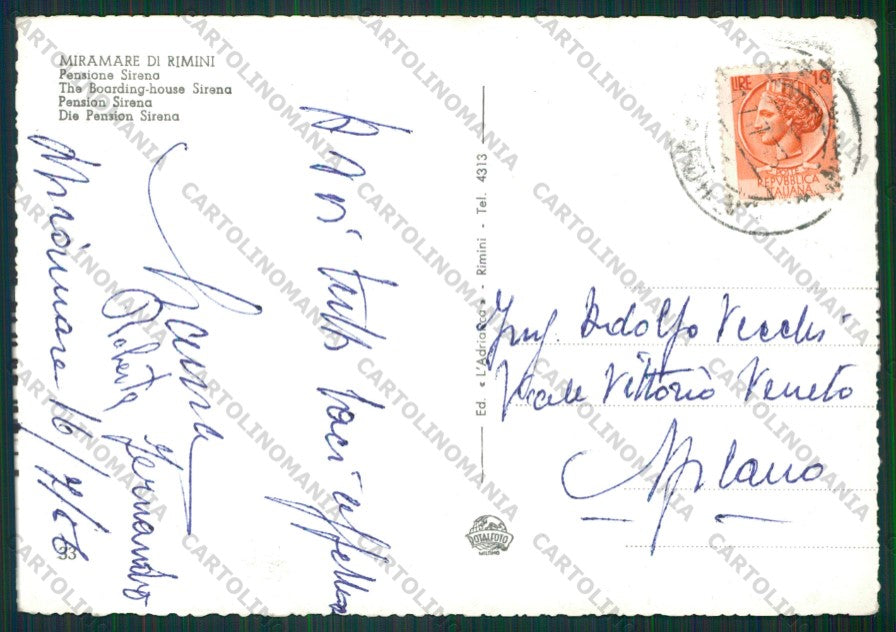 MIRAMARE DI RIMINI
Pensione Sirena
The Boarding-house Sirena
Pension Sirena
Die Pension Sirena
A voi tutti baci affettuosi
Roberta
Fernando
Miramare 16/7/56
33
Ed. « L'Adriatica » - Rimini - Tel. 4313
ROTALFOTO
MILANO
LIRE 10
POSTE
REPVBBLICA
ITALIANA
Ing. Adolfo Vecchi
Viale Vittorio Veneto
Milano
CARTOLINOMANIA